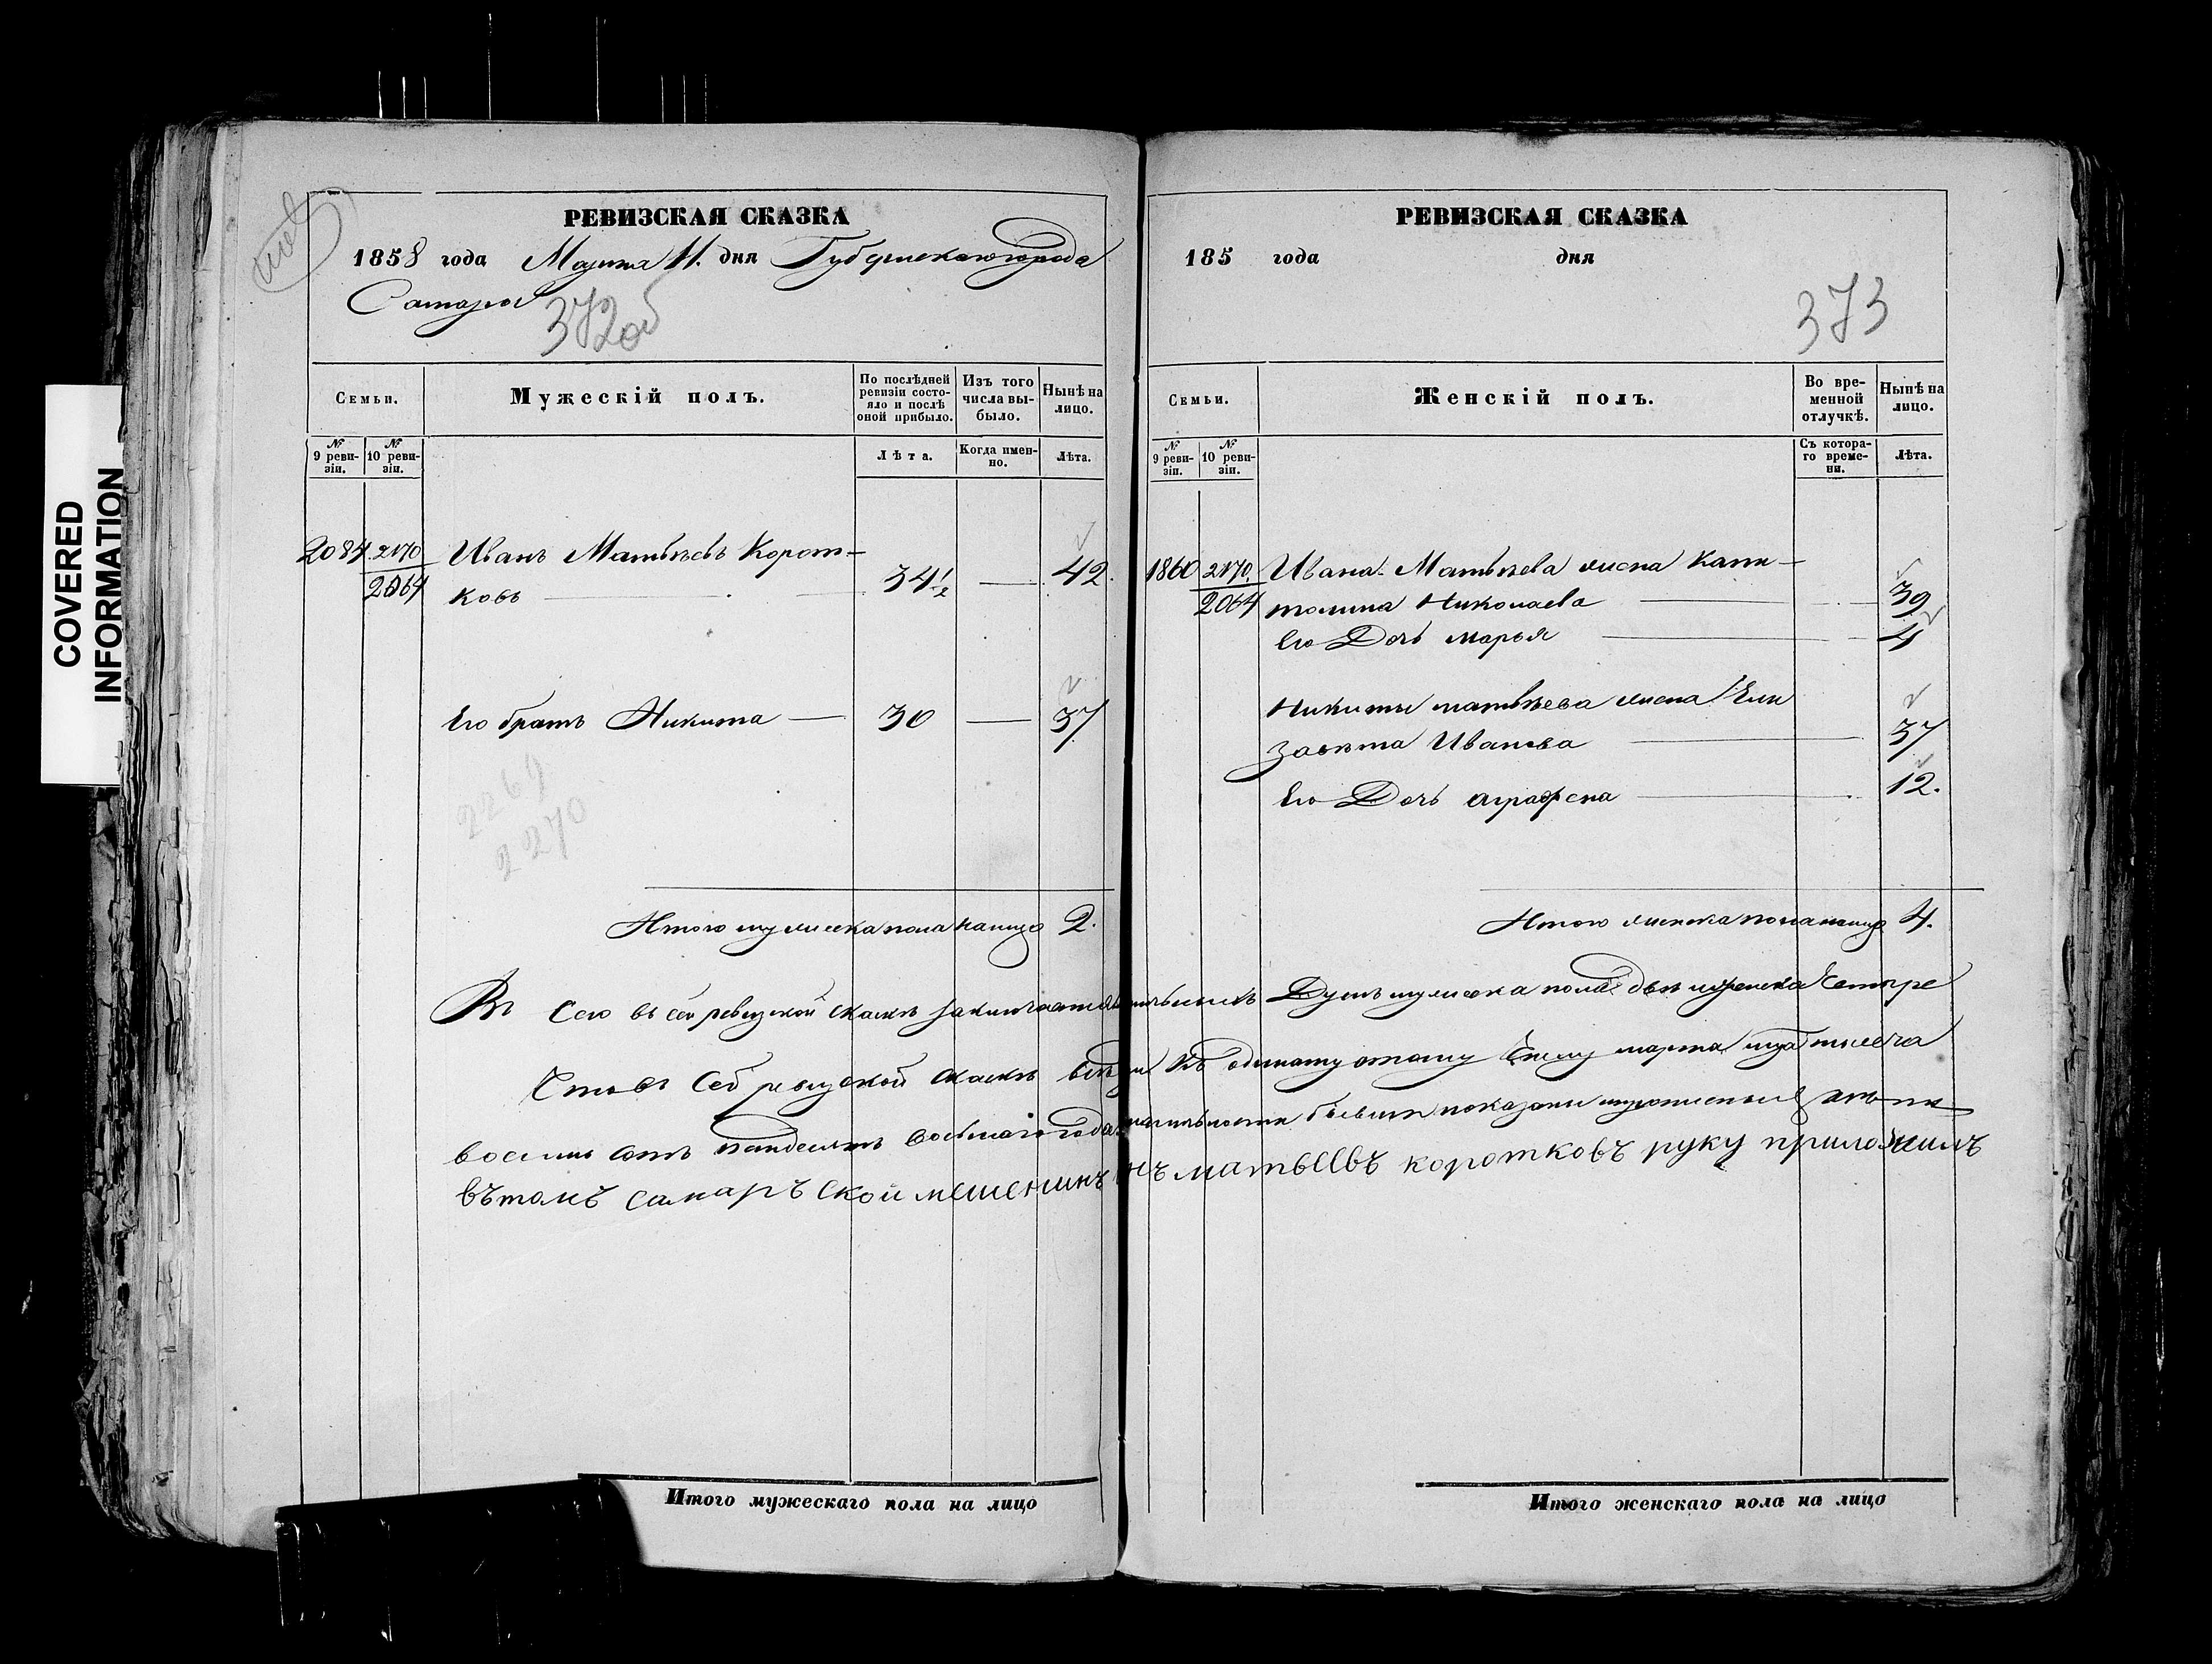 РЕВИЗСКАЯ СКАЗКА
1858 года Марта 11. дня Губернскаго города
Самары
372об
Семьи.
Мужескій полъ.
По послѣдней ревизіи состояло и послѣ оной прибыло.
Изъ того числа выбыло.
Нынѣ на лицо.
№ 9 ревизіи.
№ 10 ревизіи.
Лѣта.
Когда именно.
Лѣта.
2084 2170 Иванъ Матвѣевъ Корот-
2064 ковъ 34 1/2 — 42.
Его братъ Никита — 30 — 37
2269
2270
Итого мужеска пола налицо 2.
РЕВИЗСКАЯ СКАЗКА
185 года дня
373
Семьи.
Женскій полъ.
Во временной отлучкѣ.
Нынѣ на лицо.
№ 9 ревизіи.
№ 10 ревизіи.
Съ котораго времени.
Лѣта.
1860 2170. Ивана Матвѣева жена Капи-
2064 толина Николаева 39
Его Дочь марья 4
Никиты матвѣева жена Ели
завета Иванова 37
Его Дочь аграфена 12.
Итого женска пола налицо 4.
Въ Сего въ сей ревизской сказкѣ заключается Душъ мужеска пола двѣ женска Четыре
Что въ Сей ревизской сказкѣ всѣ Къ одинатцотому Числу марта тысеча
восемь сотъ пандесятъ восьмаго года бывшія показаны
въ томъ самаръской мешенинъ матвеевъ коротковъ руку приложилъ
Итого мужескаго пола на лицо
Итого женскаго пола на лицо
COVERED
INFORMATION